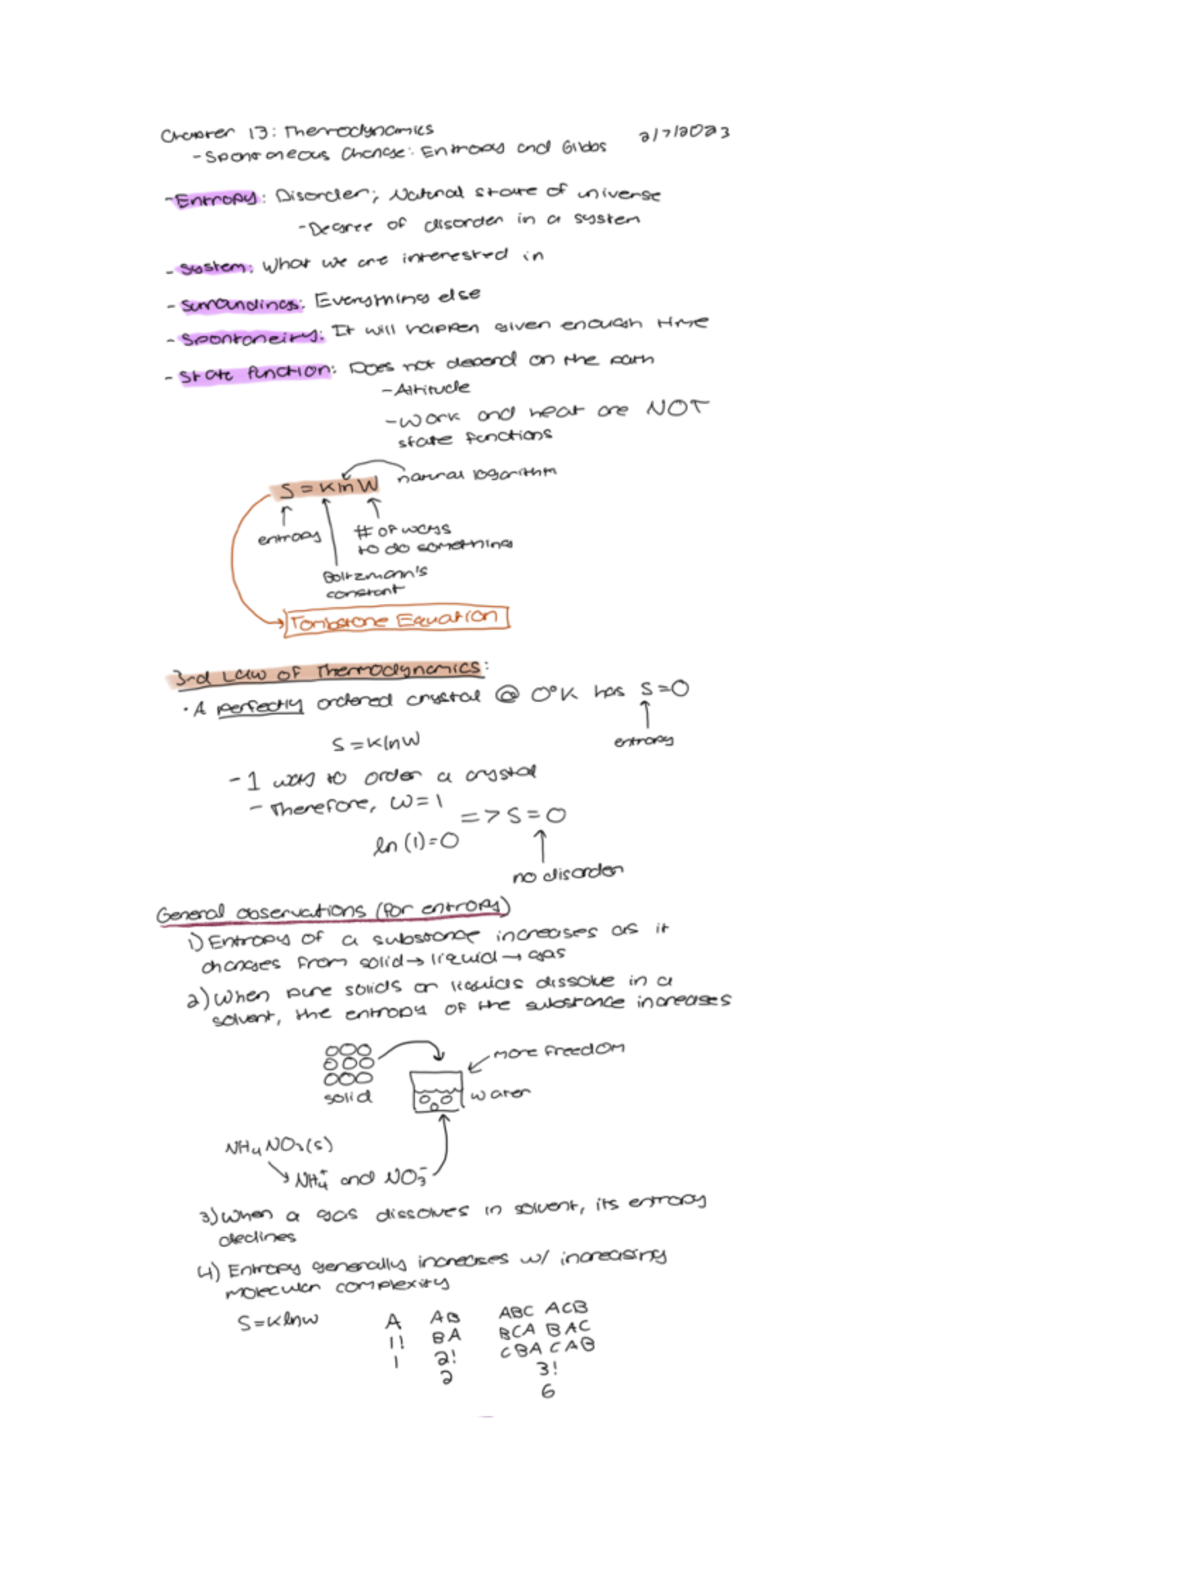 Chapter 13: Thermodynamics
2/7/2023
- Spontaneous Change: Entropy and Gibbs
- Entropy: Disorder; Natural state of universe
- Degree of disorder in a system
- System: What we are interested in
- Surroundings: Everything else
- Spontaneity: It will happen given enough time
- State function: Does not depend on the path
- Altitude
- Work and heat are NOT
state functions
S = K ln W
natural logarithm
entropy
# of ways
to do something
Boltzmann's
constant
Tombstone Equation
3rd Law of Thermodynamics:
• A perfectly ordered crystal @ 0°K has S=0
S = K ln W
entropy
- 1 way to order a crystal
- Therefore, W = 1
=> S = 0
ln (1) = 0
no disorder
General observations (for entropy)
1) Entropy of a substance increases as it
changes from solid → liquid → gas
2) When pure solids or liquids dissolve in a
solvent, the entropy of the substance increases
more freedom
solid
water
NH4NO3(s)
NH4+ and NO3-
3) When a gas dissolves in solvent, its entropy
declines
4) Entropy generally increases w/ increasing
molecular complexity
S = K ln W
A AB ABC ACB
1! BA BCA BAC
1 2! CBA CAB
2 3!
6